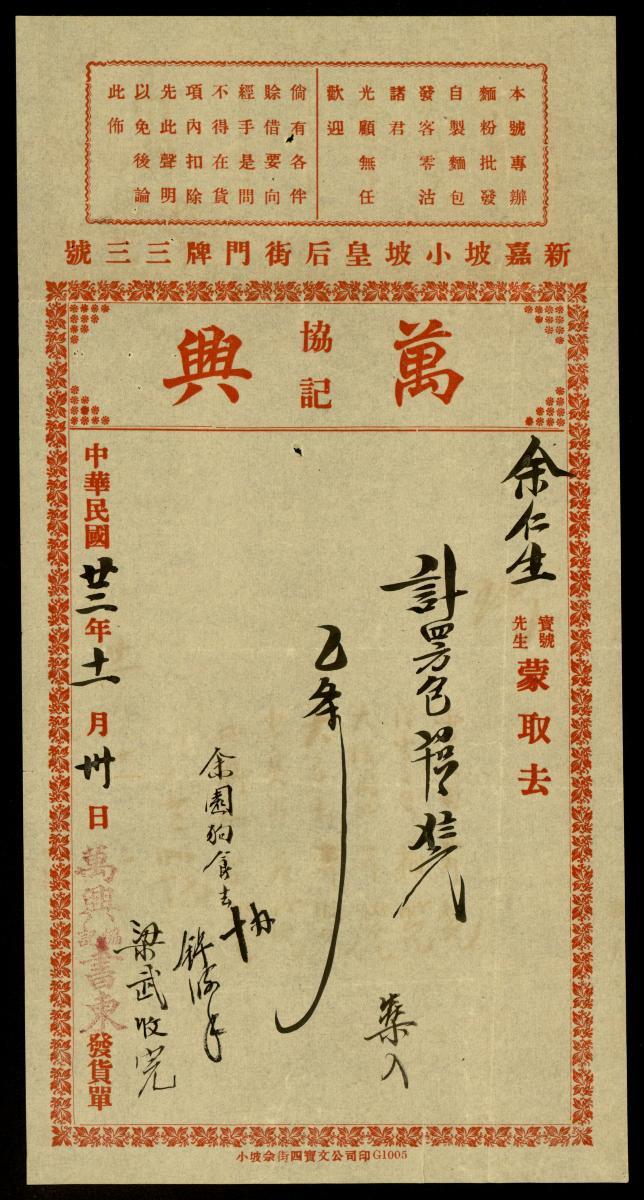 本號專辦
麵粉批發
自製麵包
發客零沽
諸君
光顧無任
歡迎
倘有各伴
賒借要向
經手是問
不得在貨
項內扣除
先此聲明
以免後論
此佈
新嘉坡小坡皇后街門牌三三號
萬興
協記
余仁生
寶號
先生
蒙取去
計四方包
乙条
余園狗食去
梁武收完
中華民國廿三年十一月卅日
萬興協記書柬
發貨單
小坡佘街四寶文公司印G1005